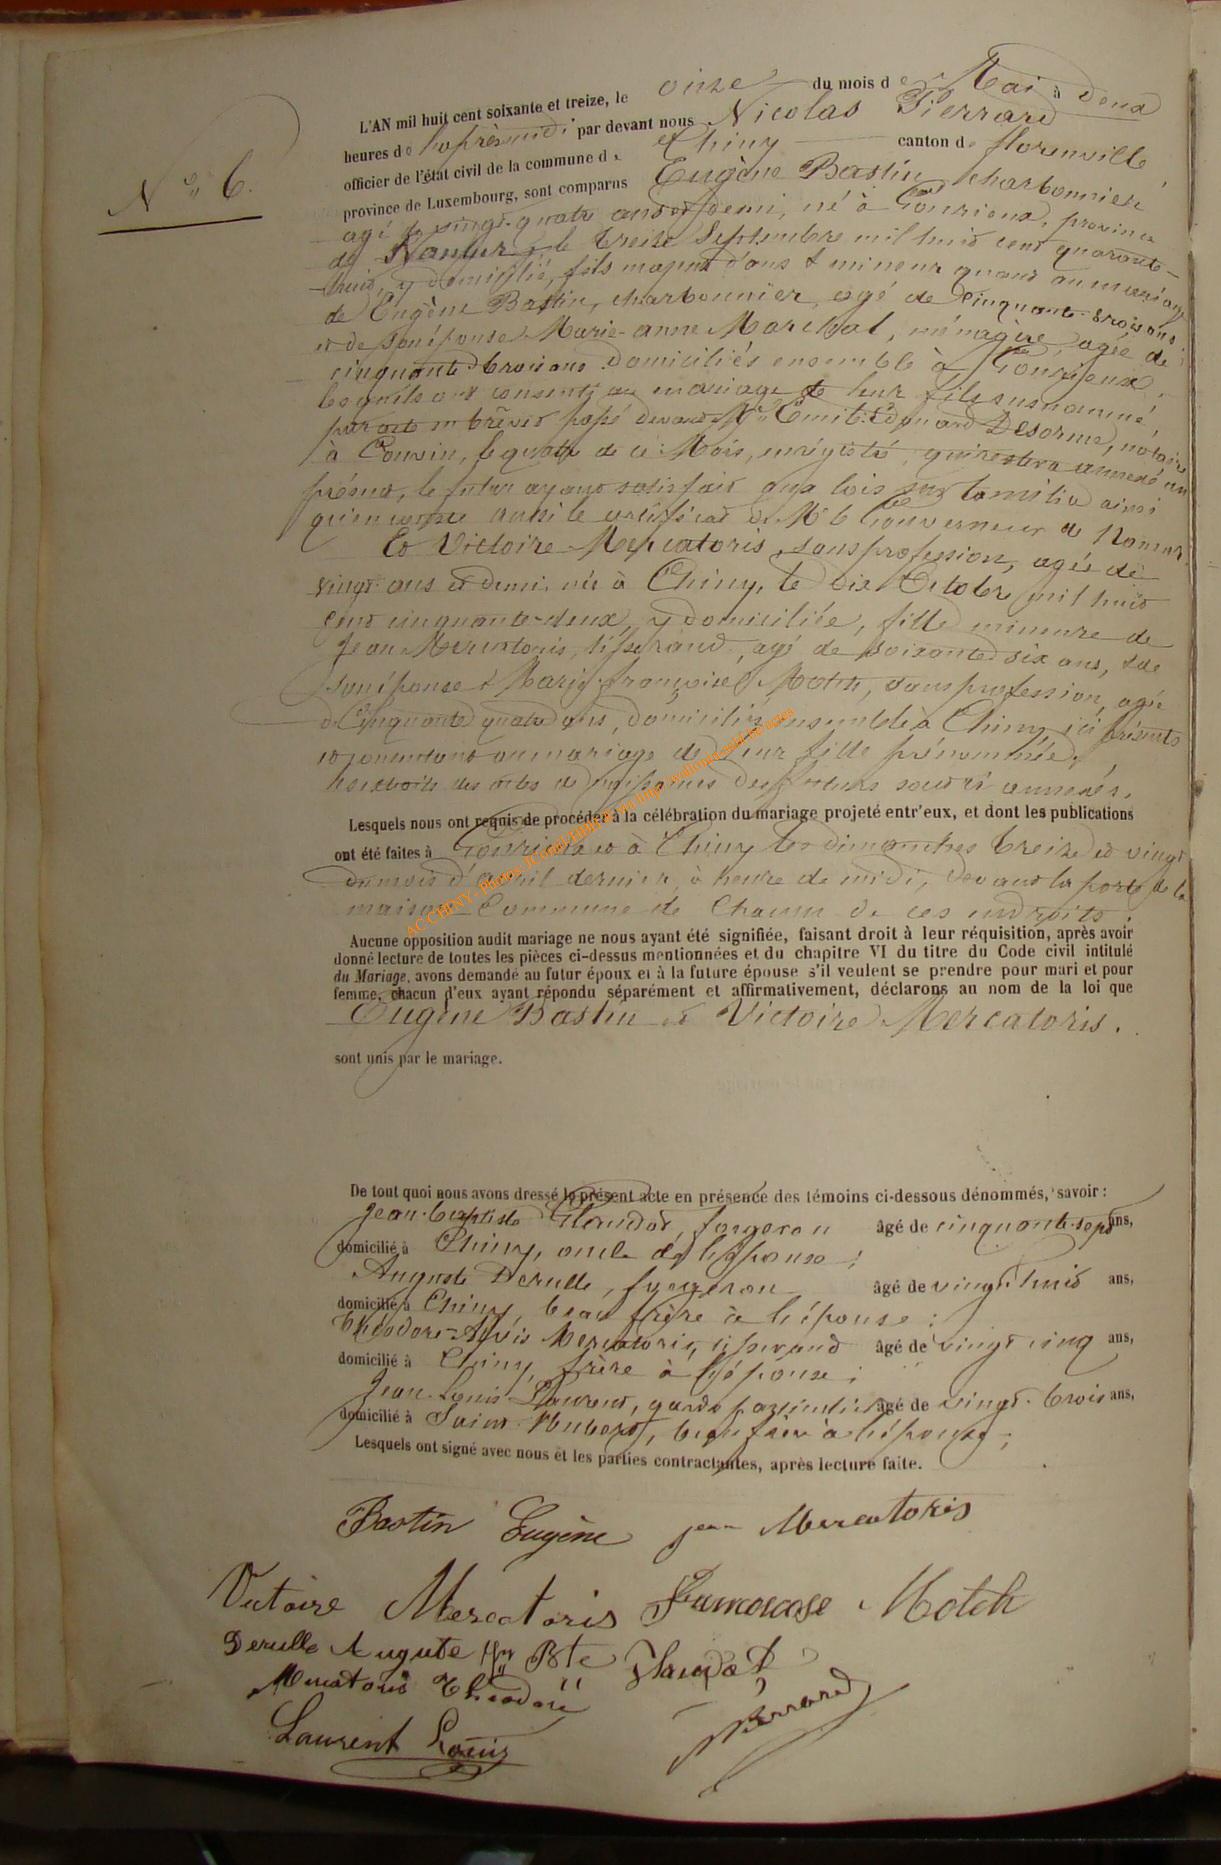 N° 6.
L'AN mil huit cent soixante et treize, le onze du mois de Mai à deux
heures de l'après midi par devant nous Nicolas Pierrard
officier de l'état civil de la commune de Chiny canton de florenville
province de Luxembourg, sont comparus Eugène Bastin, charbonnier,
agé de vingt-quatre ans et demi, né à Gourieux, province
de Namur, le treize Septembre mil huit cent quarante-
huit, y domicilié, fils majeur d'ans & mineur quant au mariage
de Eugène Bastin, charbonnier, agé de cinquante-trois ans,
et de son épouse Marie-anne Marchal, ménagère, agée de
cinquante trois ans domiciliés ensemble à Gourieux,
lesquels ont consenti au mariage de leur fils susnommé,
par acte en brêvet passé devant Mr Emile Edouard Désorme, notaire
à Couvin, le quatre de ce Mois, enrégistré, qui restera annexé au
présent, le futur ayant satisfait aux lois sur la milice ainsi
qu'en conste aussi le certificat de Mr le Gouverneur de Namur.
Et Victoire Mercatoris, sans profession, agée de
vingt ans et demi, née à Chiny, le dix Octobre mil huit
cent cinquante-deux, y domiciliée, fille mineure de
Jean Mercatoris, tisserand, agé de soixante six ans, & de
son épouse Marie françoise Motch, sans profession, agée
de Cinquante quatre ans, domiciliés ensemble à Chiny, ici présents
et consentant au mariage de leur fille prénommée,
les extraits des actes de naissances des futurs sont ci annexés.
Lesquels nous ont requis de procéder à la célébration du mariage projeté entr'eux, et dont les publications
ont été faites à Gourieux et à Chiny les dimanches treize et vingt
du mois d'avril dernier, à heure de midi, devant la porte de la
maison Commune de Chacun de ces endroits.
Aucune opposition audit mariage ne nous ayant été signifiée, faisant droit à leur réquisition, après avoir
donné lecture de toutes les pièces ci-dessus mentionnées et du chapitre VI du titre du Code civil intitulé
du Mariage, avons demandé au futur époux et à la future épouse s'il veulent se prendre pour mari et pour
femme, chacun d'eux ayant répondu séparément et affirmativement, déclarons au nom de la loi que
Eugène Bastin et Victoire Mercatoris.
sont unis par le mariage.
De tout quoi nous avons dressé le présent acte en présence des témoins ci-dessous dénommés, savoir :
Jean-baptiste Flaudat, forgeron âgé de cinquante-sept ans,
domicilié à Chiny, oncle de l'épouse ;
Auguste Derulle, forgeron âgé de vingt huit ans,
domicilié à Chiny, beau frère à l'épouse ;
Théodore Mercatoris, tisserand âgé de vingt cinq ans,
domicilié à Chiny, frère à l'épouse ;
Jean-Louis Laurent, garde particulier âgé de vingt-trois ans,
domicilié à Saint-Hubert, beau frère à l'épouse ;
Lesquels ont signé avec nous et les parties contractantes, après lecture faite.
Bastin Eugène Jean Mercatoris
Victoire Mercatoris Francoise Motch
Derulle Auguste Jn Bte Flaudat
Mercatoris Théodore Pierrard
Laurent Louis